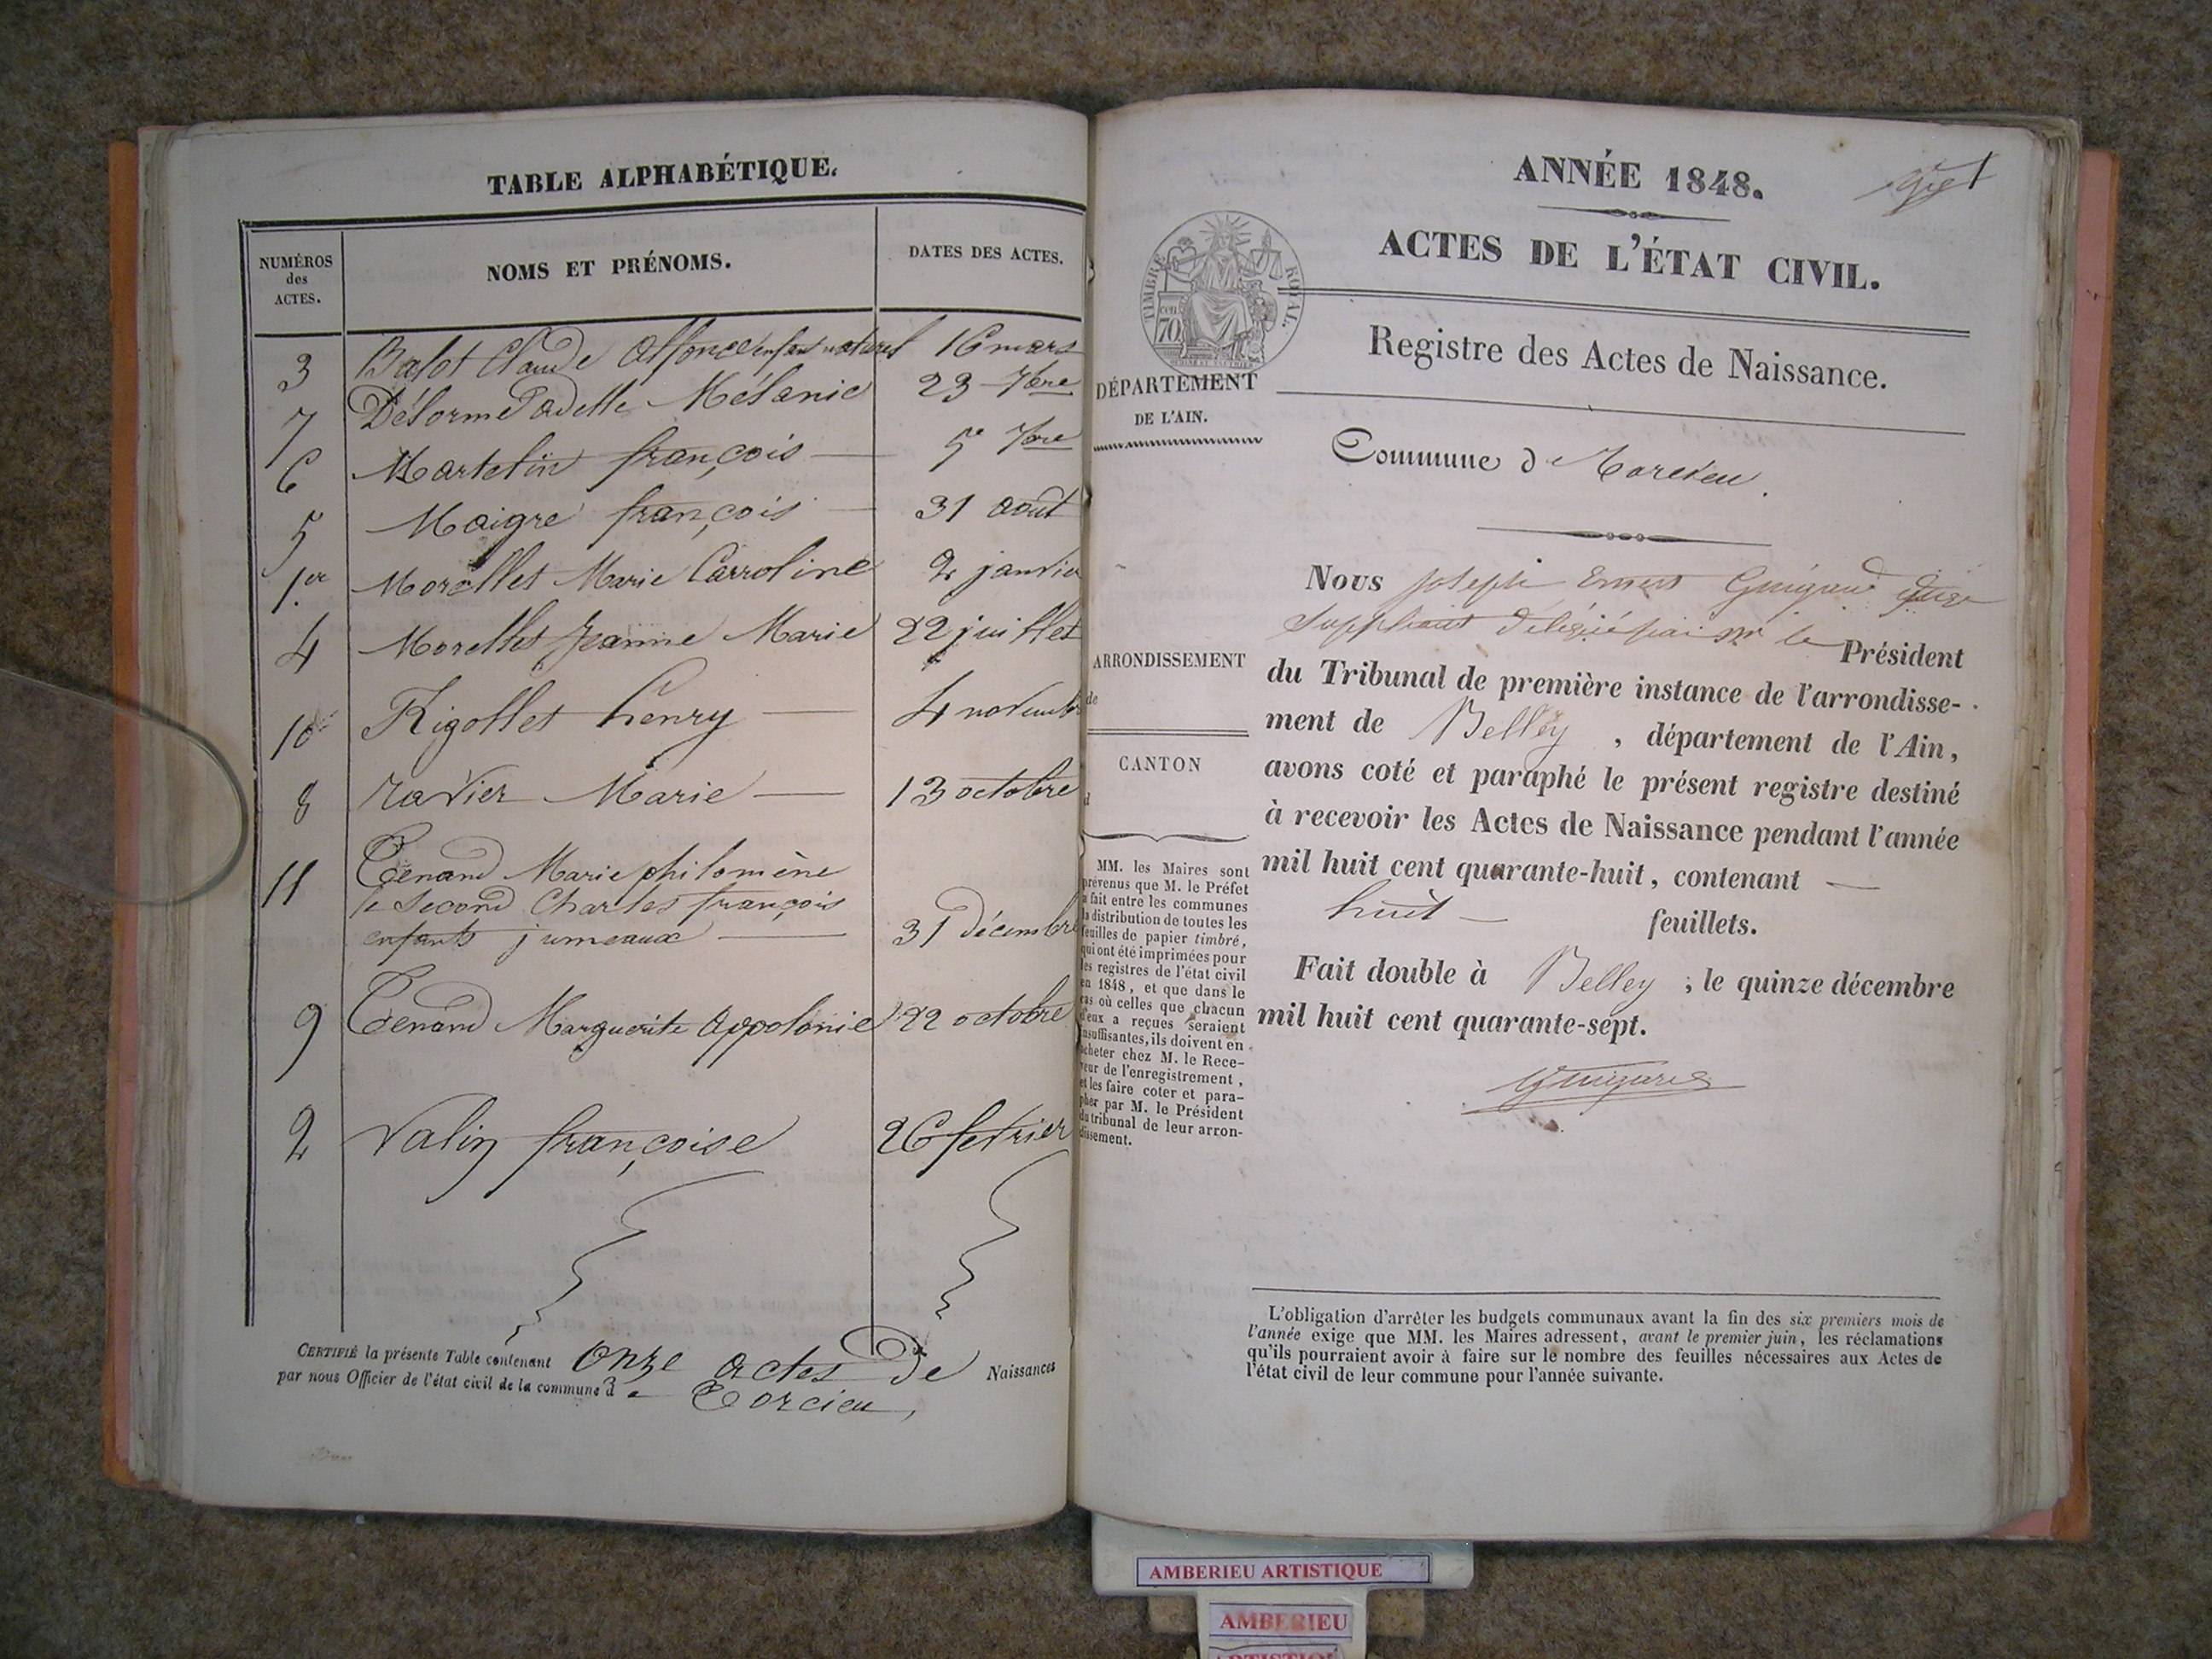 TABLE ALPHABÉTIQUE.
NUMÉROS
des
ACTES.
NOMS ET PRÉNOMS.
DATES DES ACTES.
3 Balot Claude Alfonce enfant naturel 16 mars
7 Délorme adelle Mélanie 23 7bre
6 Martelin françois 5e 7bre
5 Maigre françois 31 août
1.er Morellet Marie Carroline 2 janvier
4 Morellet Jeanne Marie 22 juillet
10 Rigollet henry 4 novembre
8 ravier Marie 13 octobre
11 Tenand Marie philomène
le Second Charles françois
enfants jumeaux 31 décembre
9 Tenand Marguerite appolonie 22 octobre
2 Valin françoise 26 fevrier
CERTIFIÉ la présente Table contenant onze actes de Naissances
par nous Officier de l'état civil de la commune de Torcieu,
ANNÉE 1848.
1
ACTES DE L'ÉTAT CIVIL.
TIMBRE ROYAL.
cen.
70
Registre des Actes de Naissance.
DÉPARTEMENT
DE L'AIN.
Commune d e Torcieu.
ARRONDISSEMENT
de
CANTON
d
MM. les Maires sont
prévenus que M. le Préfet
a fait entre les communes
la distribution de toutes les
feuilles de papier timbré,
qui ont été imprimées pour
les registres de l'état civil
en 1848, et que dans le
cas où celles que chacun
d'eux a reçues seraient
insuffisantes, ils doivent en
acheter chez M. le Rece-
veur de l'enregistrement,
et les faire coter et para-
pher par M. le Président
du tribunal de leur arron-
dissement.
Nous Joseph Ernest Guigard Juge
Suppléant délégué par Mr le Président
du Tribunal de première instance de l'arrondisse-
ment de Belley, département de l'Ain,
avons coté et paraphé le présent registre destiné
à recevoir les Actes de Naissance pendant l'année
mil huit cent quarante-huit, contenant
huit feuillets.
Fait double à Belley; le quinze décembre
mil huit cent quarante-sept.
Guigard
L'obligation d'arrêter les budgets communaux avant la fin des six premiers mois de
l'année exige que MM. les Maires adressent, avant le premier juin, les réclamations
qu'ils pourraient avoir à faire sur le nombre des feuilles nécessaires aux Actes de
l'état civil de leur commune pour l'année suivante.
AMBERIEU ARTISTIQUE
AMBERIEU
ARTISTIQUE